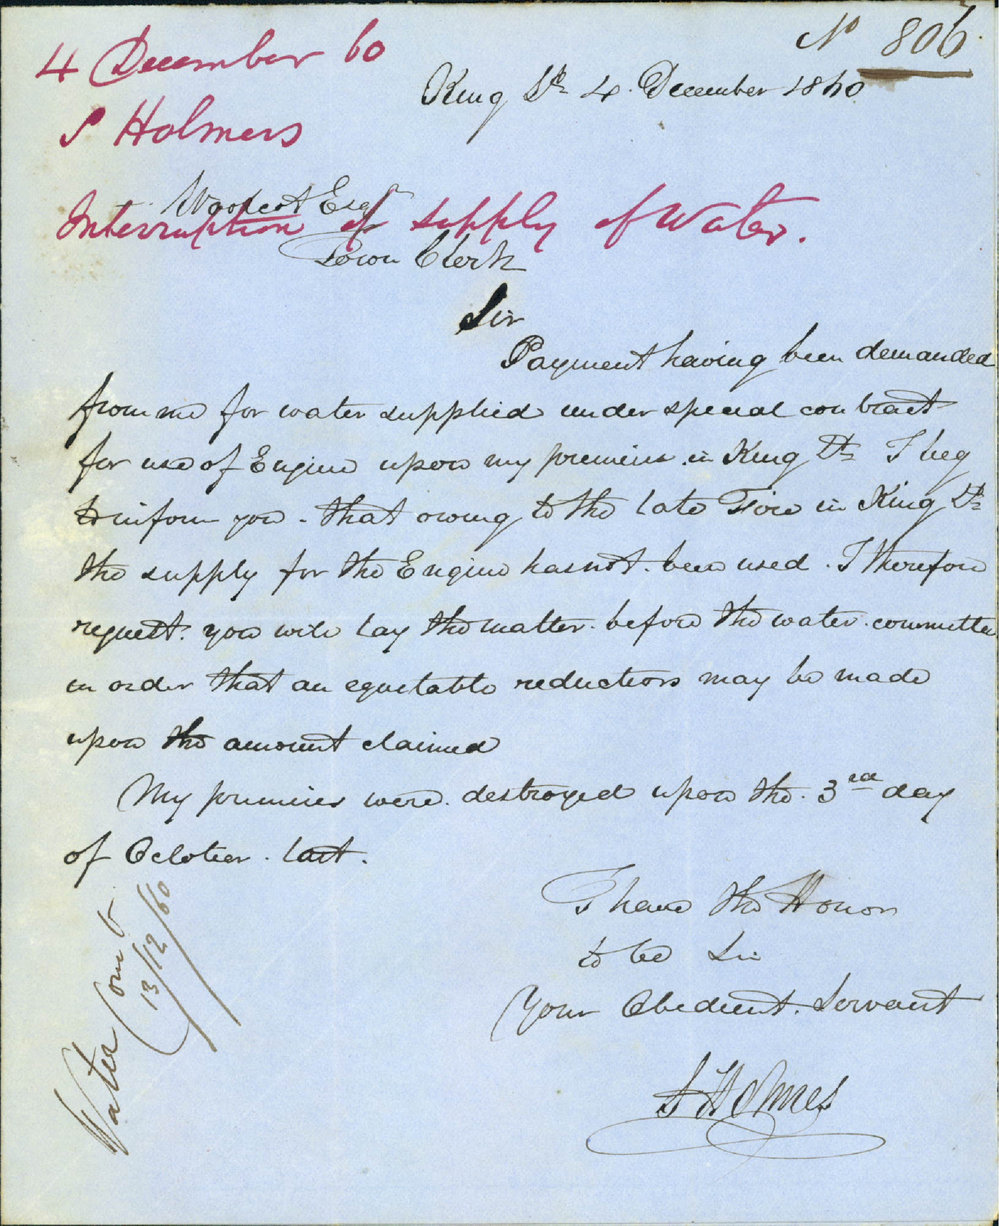 No 806
4 December 60
S Holmers
Interruption of supply of Water.
King St 4 December 1860
Woolcott Esqr
Town Clerk
Sir
Payment having been demanded
from me for water supplied under special contract
for use of Engine upon my premises in King St I beg
to inform you - that owing to the late Fire in King St
the supply for the Engine has not been used. I therefore
request you will lay the matter before the water committee
in order that an equitable reduction may be made
upon the amount claimed
My premises were destroyed upon the 3rd day
of October last.
I have the Honor
to be Sir
Your Obedient Servant
S Holmes
Water Comee
13/12/60